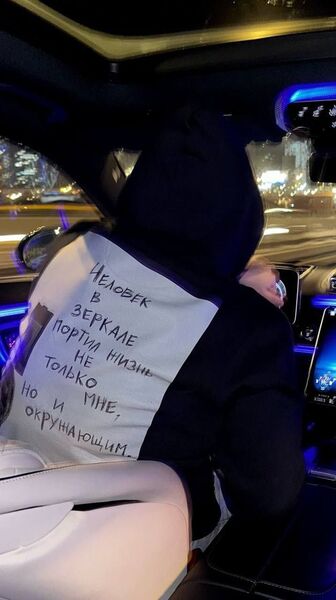 ЧЕЛОВЕК
В
ЗЕРКАЛЕ
ПОРТИЛ ЖИЗНЬ
НЕ
ТОЛЬКО
МНЕ,
НО И
ОКРУЖАЮЩИМ.